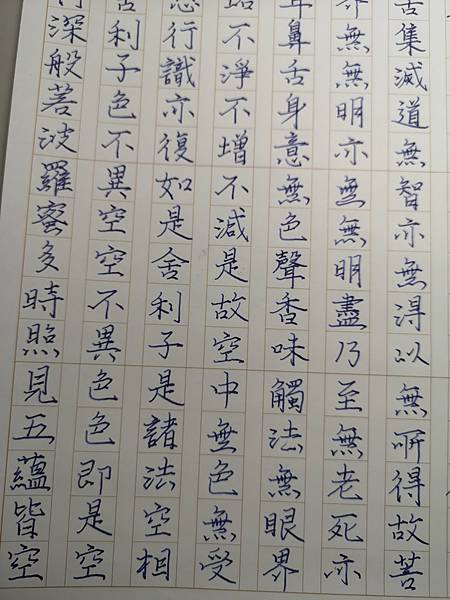 深般菩波羅蜜多時照見五蘊皆空
利子色不異空空不異色色即是空
行識亦復如是舍利子是諸法空相
不淨不增不減是故空中無色無受
耳鼻舌身意無色聲香味觸法無眼界
界無無明亦無無明盡乃至無老死亦
集滅道無智亦無得以無所得故菩